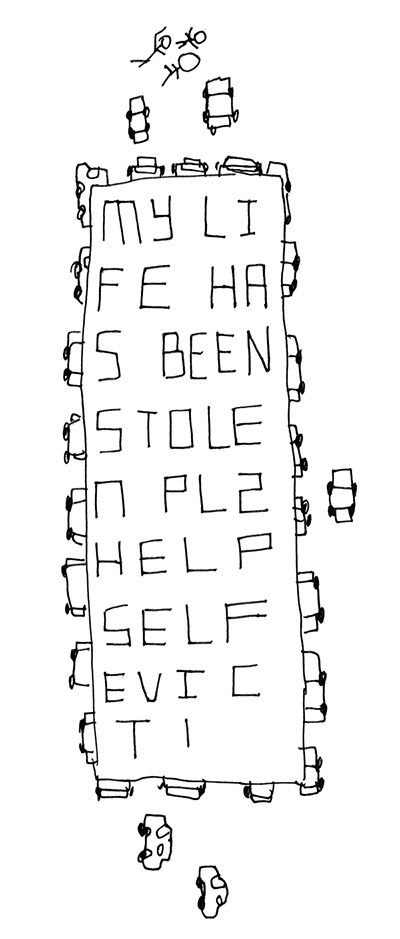 MY LI
FE HA
S BEEN
STOLE
N PLZ
HELP
SELF
EVIC
TI